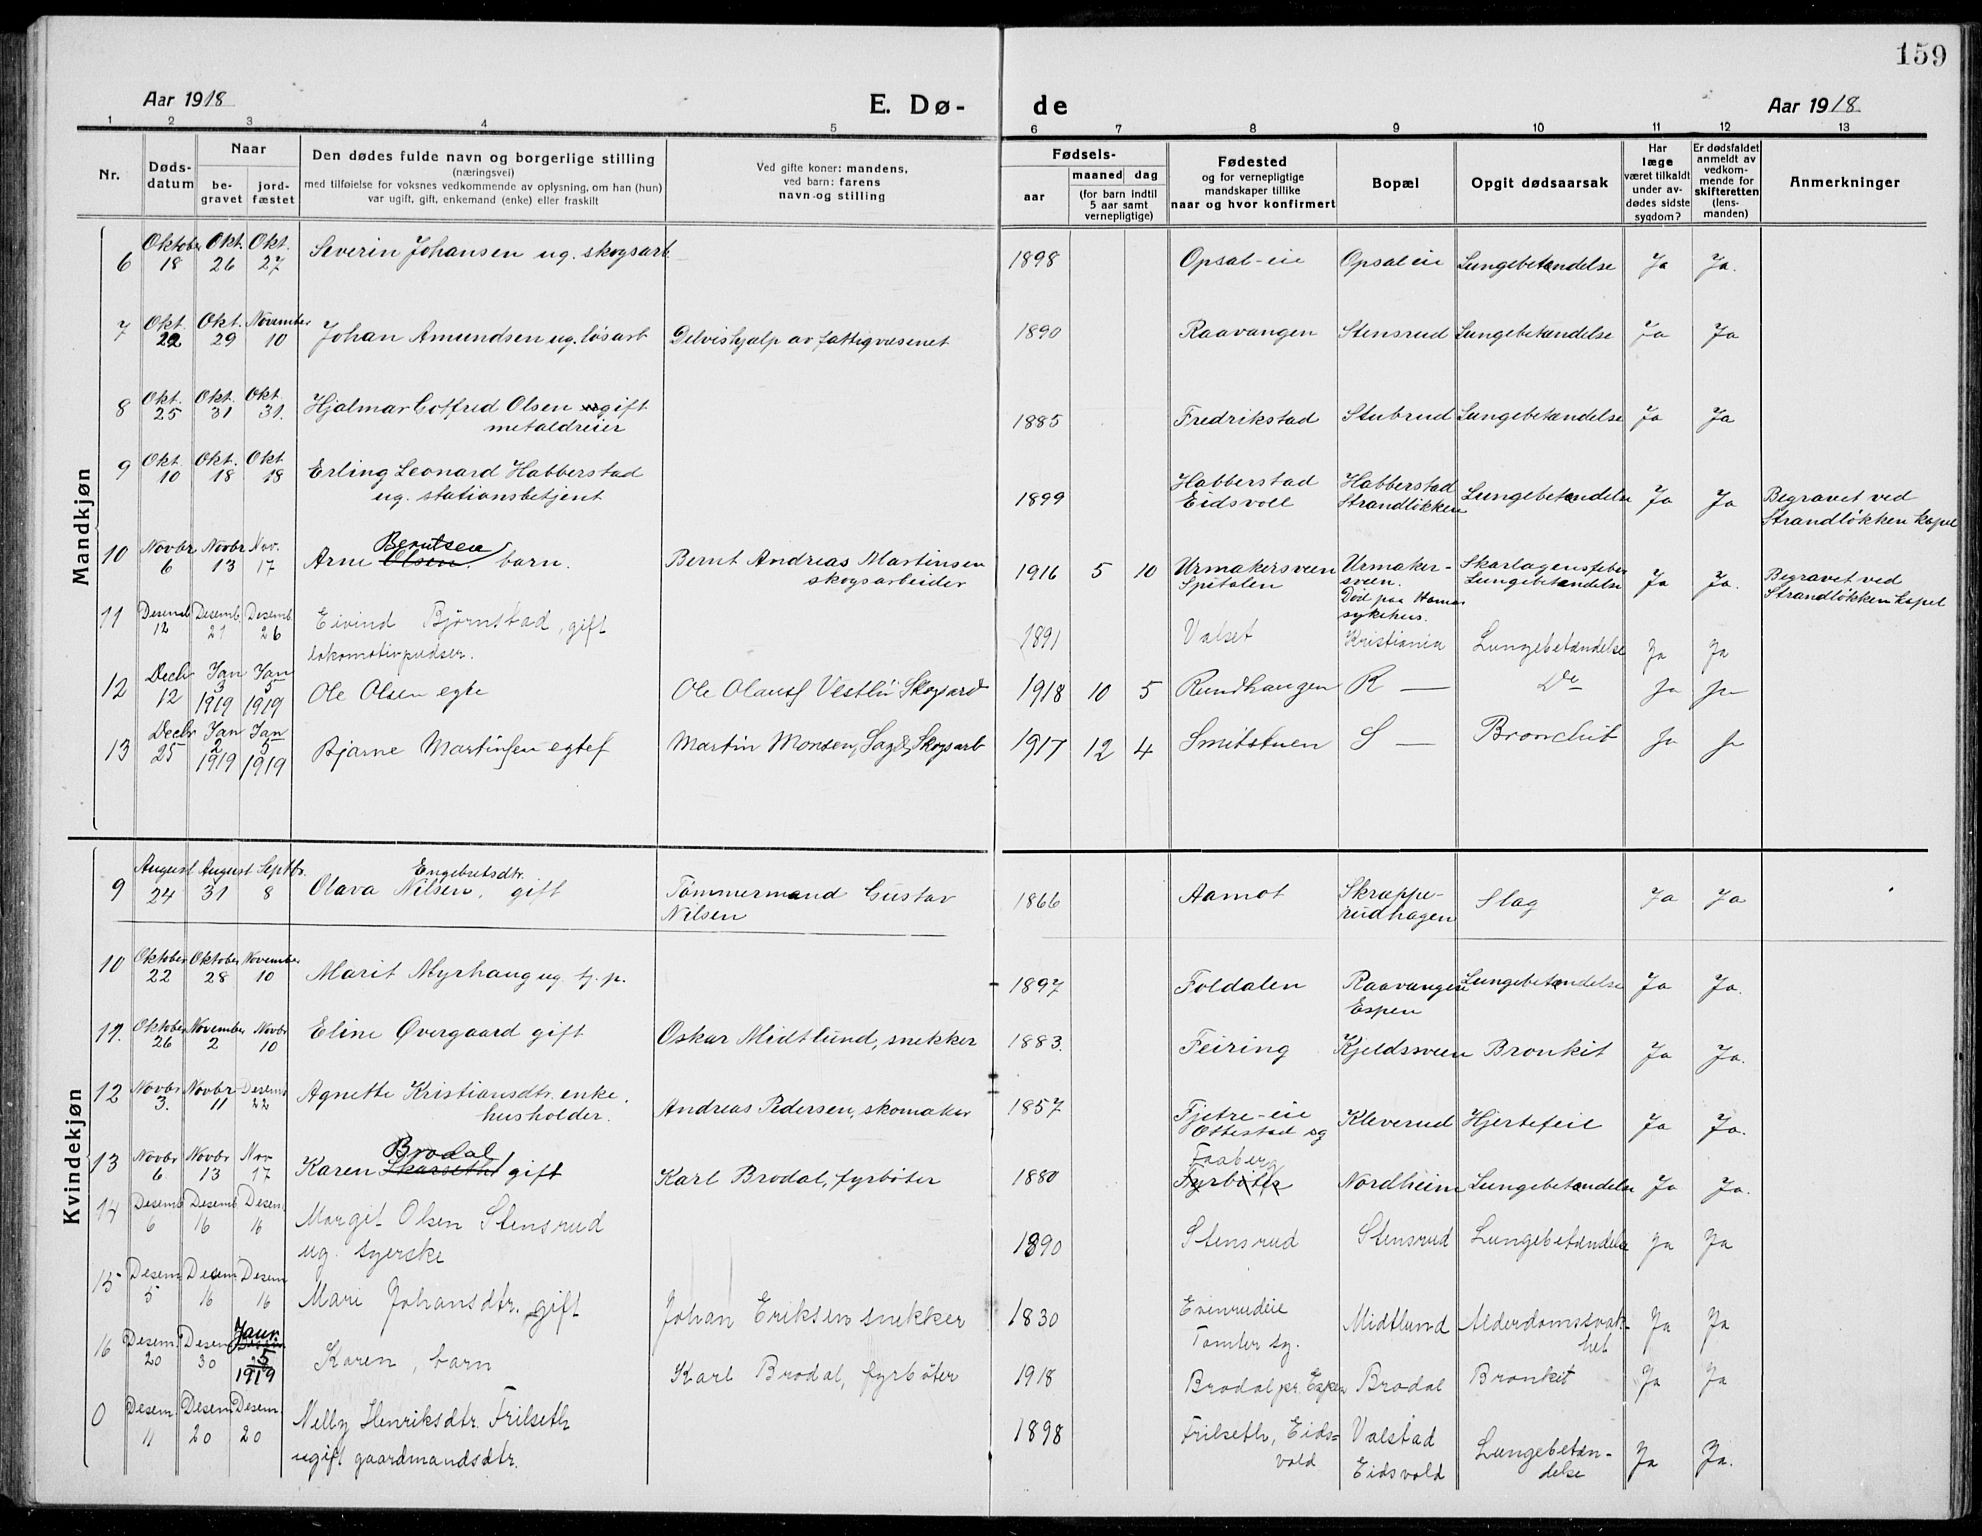 159
Aar 1918 E. Dø- de Aar 1918
1 2 3 4 5 6 7 8 9 10 11 12 13
Nr. Døds-datum Naar begravet jordfæstet Den dødes fulde navn og borgerlige stilling (næringsvei) med tilføielse for voksnes vedkommende av oplysning, om han (hun) var ugift, gift, enkemand (enke) eller fraskilt Ved gifte koner: mandens, ved barn: farens navn og stilling Fødsels- aar maaned dag (for barn indtil 5 aar samt vernepligtige) Fødested og for vernepligtige mandskaper tillike naar og hvor konfirmert Bopæl Opgit dødsaarsak Har læge været tilkaldt under avdødes sidste sygdom? Er dødsfaldet anmeldt av vedkommende for skifteretten (lensmanden) Anmerkninger
Mandkjøn
6 Oktober 18 Okt. 26 Okt. 27 Severin Johansen ug. skogsarb. 1898 Opsal-eie Opsal eie Lungebetændelse Ja Ja.
7 Okt. 22 Okt. 29 November 10 Johan Amundsen ug. løsarb Delvishjælp av fattigvæsenet 1890 Raavangen Stensrud Lungebetændelse Ja Ja
8 Okt. 25 Okt. 31 Okt. 31. Hjalmar Gotfred Olsen gift
metaldreier 1885 Fredrikstad Stubrud Lungebetændelse Ja Ja
9 Okt. 10 Okt. 18 Okt 18 Erling Leonard Habberstad
ug. stationsbetjent 1899 Habberstad Eidsvoll Habberstad Strandløkken Lungebetændelse Ja Ja Begravet ved Strandløkken kapel
10 Novbr 6 Novbr 13 Nov. 17 Arne Olsen Berntsen barn. Bernt Andreas Martinsen skogsarbeider 1916 5 10 Urmakersveen Spitalen Urmaker-sveen. Død paa Hamar sykehus. Skarlagensfeber Lungebetændelse Ja Ja. Begravet ved Strandløkken kapel
11 Desemb 12 Desemb 21 Desemb 26 Eivind Bjørnstad, gift
lokomotivpudser. 1891 Valset Kristiania Lungebetændelse Ja Ja
12 Decbr 12 Jan 3 1919 Jan 5 1919 Ole Olsen egte Ole Olausf Vestli Skogsarb 1918 10 5 Rundhaugen R — Do Ja Ja
13 Decbr 25 Jan 2 1919 Jan 5 1919 Bjarne Martinsen egtef Martin Monsen, Sag & Skogsarb 1917 12 4 Smitstuen S — Bronchit Ja Ja
Kvindekjøn
9 August 24 August 31 Septbr. 8 Olava Engebretsdtr. Nilsen, gift Tømmermand Gustav Nilsen 1866 Aamot Skrapperudhagen Slag Ja Ja
10 Oktober 22 Oktober 28 November 10 Marit Myrhaug ug. tj. p. 1897 Foldalen Raavangen Espen Lungebetændelse Ja Ja.
11. Oktober 26 November 2 Novbr 10 Eline Øvergaard gift Oskar Midtlund, snekker 1883. Feiring Kjeldsveen Bronkit Ja Ja.
12 Novbr 3. Novbr 11 Desemb 22 Agnette Kristiansdtr. enke.
husholder. Andreas Pedersen, skomaker 1857 Fjetre-eie Ottestad sg Kleverud Hjertefeil Ja Ja.
13 Novbr 6 Novbr 13 Nov 17 Karen Skarseth Brodal gift Karl Brodal, fyrbøter 1880 Faaberg Fyrbøter Nordheim Lungebetændelse Ja Ja.
14 Desemb 6 Desemb 16 Desem. 16 Margit Olsen Stensrud
ug. syerske 1890 Stensrud Stensrud Lungebetændelse Ja Ja
15 Desem. 5 Desem. 16 Desem 16 Mari Johansdtr. gift Johan Eriksen snekker 1830 Evenrudeie Tomter sg. Midtlund Alderdomssvakhet Ja Ja
16 Desem. 20 Desem 30 Janr. 5 1919 Karen, barn Karl Brodal, fyrbøter 1918 Brodal pr. Espen Brodal Bronkit Ja Ja
0 Desem. 11 Desem. 20 Desem. 20 Nelly Henriksdtr. Frilseth
ugift gaardmandsdtr. 1898 Frilseth, Eidsvold Valstad Eidsvold Lungebetændelse Ja Ja.